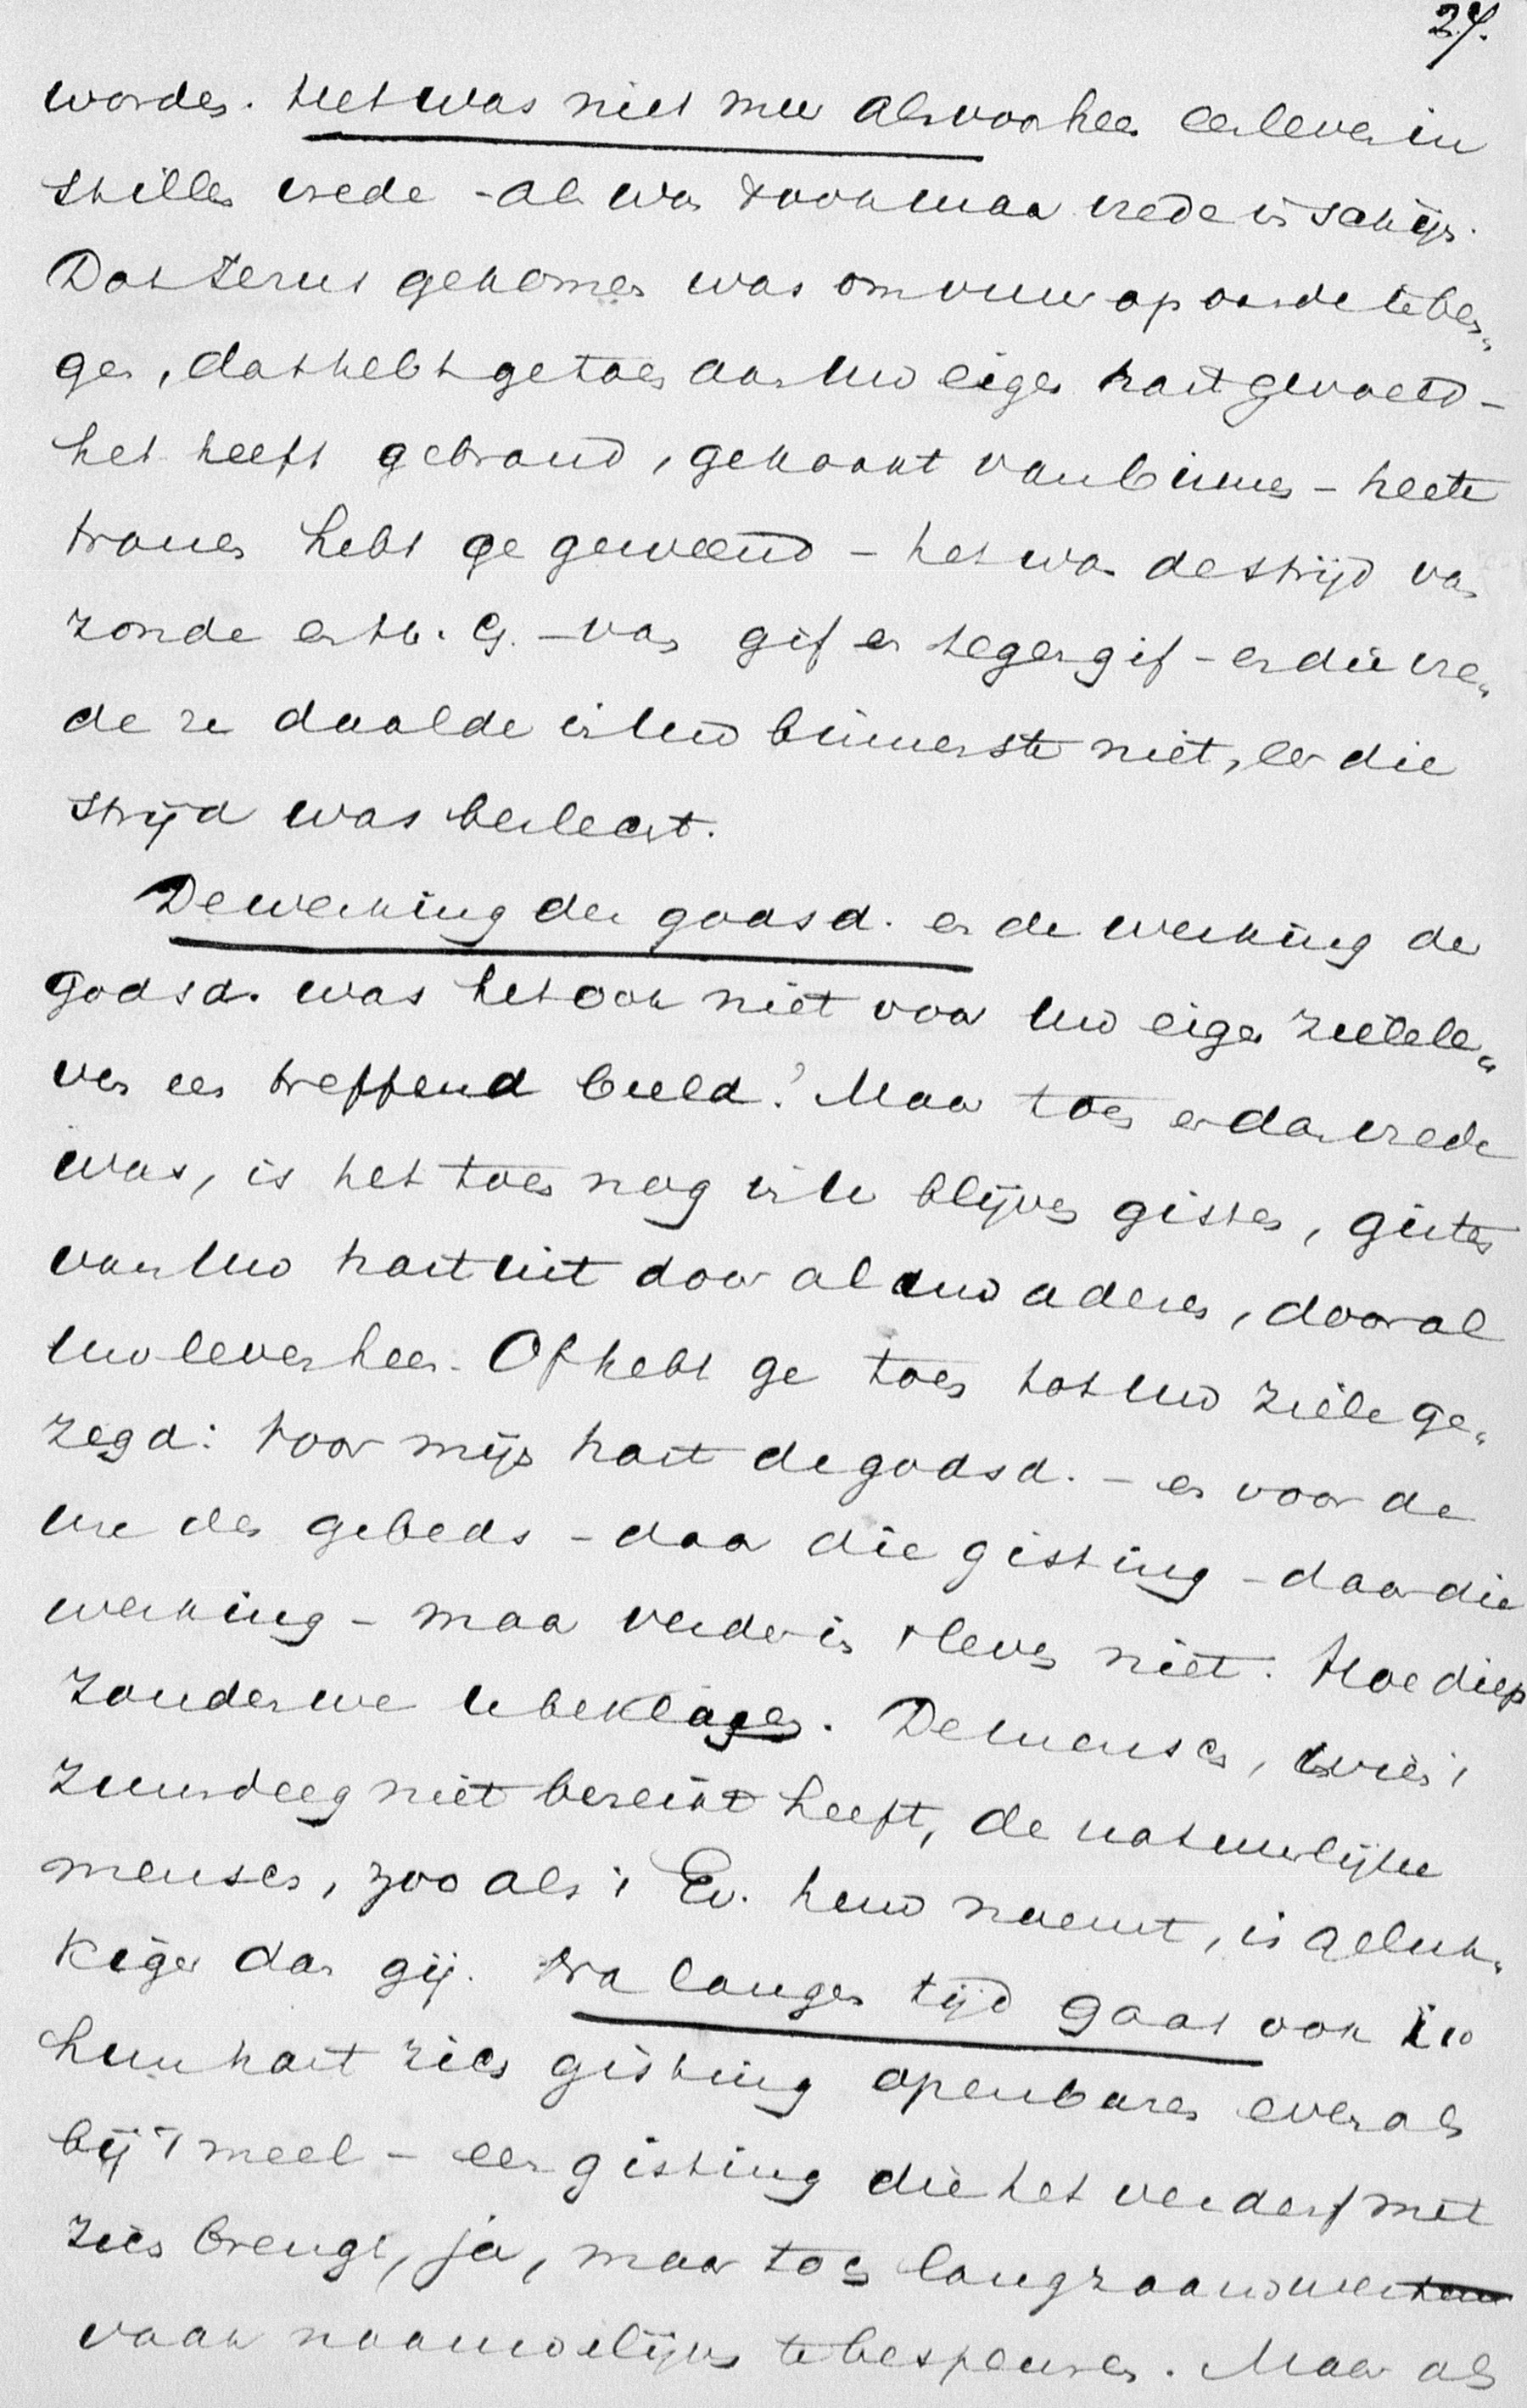 27.
worden. Het was niet meer als voorheen een leven in
stillen vrede - al was 't ook maar vrede in schijn.
Dat Jezus gekomen was om vuur op aarde te bren„
gen, dat hebt ge toen aan Uw eigen hart gevoeld -
het heeft gebrand, gekookt van binnen - heete
tranen hebt ge geweend - het was de strijd van
zonde en H. G. - van gif en tegengif - en die vre„
de ze daalde in Uw binnenste niet, eer die
strijd was beslecht.
De werking der godsd. en de werking der
godsd. was het ook niet voor Uw eigen zielele„
ven een treffend beeld? Maar toen er dan vrede
was, is het toen nog in U blijven gisten, gisten
van Uw hart uit door al Uw aderen, door al
Uw leven heen. Of hebt ge toen tot Uw ziele ge„
zegd: voor mijn hart de godsd. - en voor de
ure des gebeds - daar die gisting - daar die
werking - maar verder in 't leven niet. Hoe diep
zouden we U beklagen. De mensch, wien 't
zuurdeeg niet bereikt heeft, de natuurlijke
mensch, zooals 't Ev. hem noemt, is geluk„
kiger dan gij. Na langen tijd gaat ook in
hun hart zich gisting openbaren evenals
bij 't meel - een gisting die het verderf met
zich brengt, ja, maar toch langzaam
vaak nauwelijks te bespeuren. Maar als